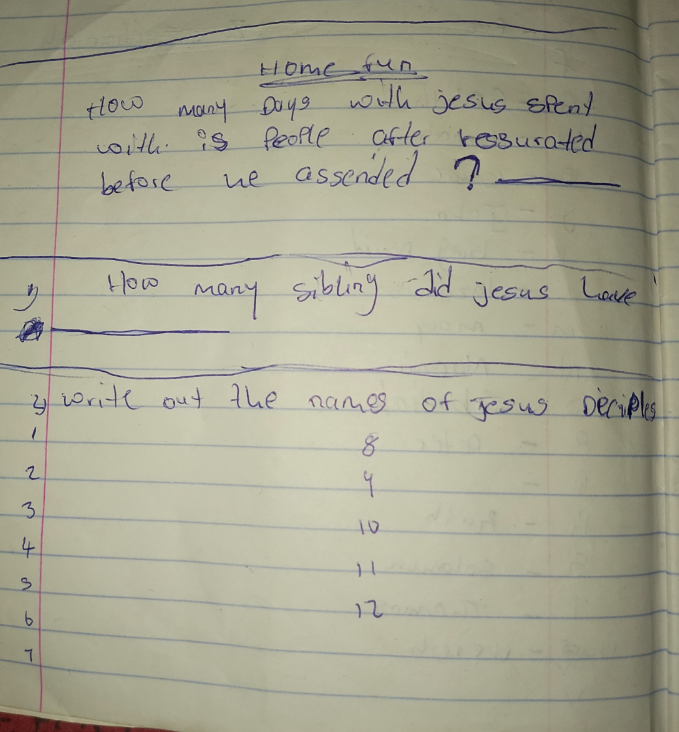 Home fun
How many Days with jesus spent
with is People after ressurated
before he assended ?
1) How many sibling did jesus have
2) write out the names of jesus Deciples
1
8
2
9
3
10
4
11
5
12
6
7